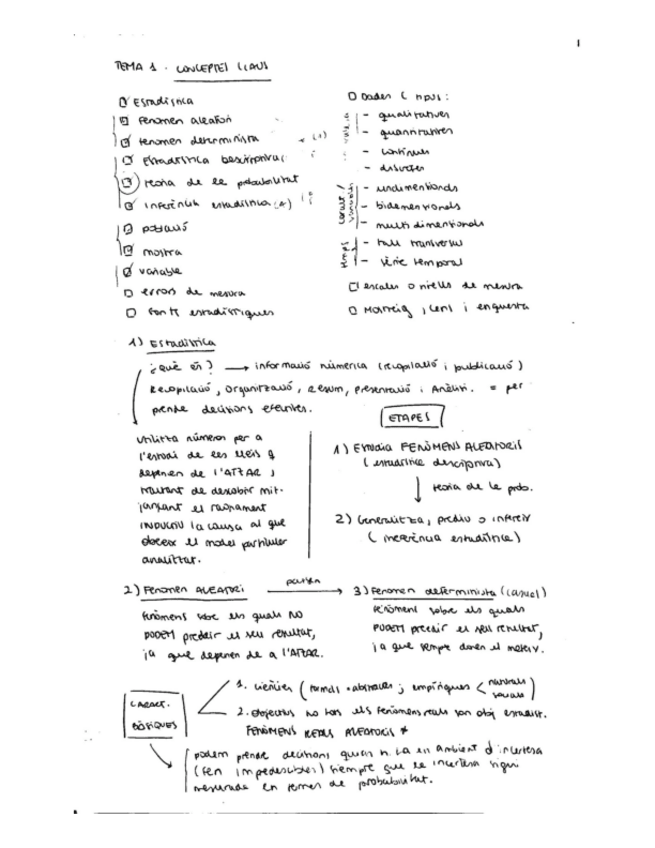 1
TEMA 1. CONCEPTES CLAUS
Estadística
Fenomen aleatori
fenomen determinista
Estadística Descriptiva
teoria de la probabilitat
inferència estadística (*)
població
mostra
variable
errors de mesura
fonts estadístiques
Dades (tipus:
- qualitatives
- quantitatives
- contínues
- discretes
- unidimensionals
- bidimensionals
- multidimensionals
- tall transversal
- sèrie temporal
caràct/
variables
temps
escales o nivells de mesura
Mostreig, cens i enquesta
1) Estadística
¿què és? → informació númerica (recopilació i publicació)
Recopilació, organització, resum, presentació i Anàlisi. = per
prendre decisions eficients.
Utilitza números per a
l'estudi de les lleis q
depenen de l'ATZAR;
tractant de descobrir mit-
jançant el raonament
INDUCTIU la causa al que
obeeix el model particular
analitzat.
ETAPES
1) Estudia FENÒMENS ALEATORIS
(estadística descriptiva)
↓ teoria de la prob.
2) Generalitza, prediu o infereix
(inferència estadística)
2) Fenomen ALEATORI → 3) Fenomen determinista (causal)
fenòmens sobre els quals NO
PODEM predeir el seu resultat,
ja que depenen de a l'ATZAR.
fenòment sobre els quals
PODEM predeir el seu resultat,
ja que sempre donen el mateix.
CARACT.
BÀSIQUES
1. Ciències (formals - abstractes; empíriques < naturals
socials)
2. Objectius no tots els fenòmens reals son obj estadíst.
FENÒMENS REALS ALEATORIS *
podem prendre decisions quan n. la en ambient d'incertesa
(fen impredecibles) siempre que la incertesa sigui
mesurada en termes de probabilitat.